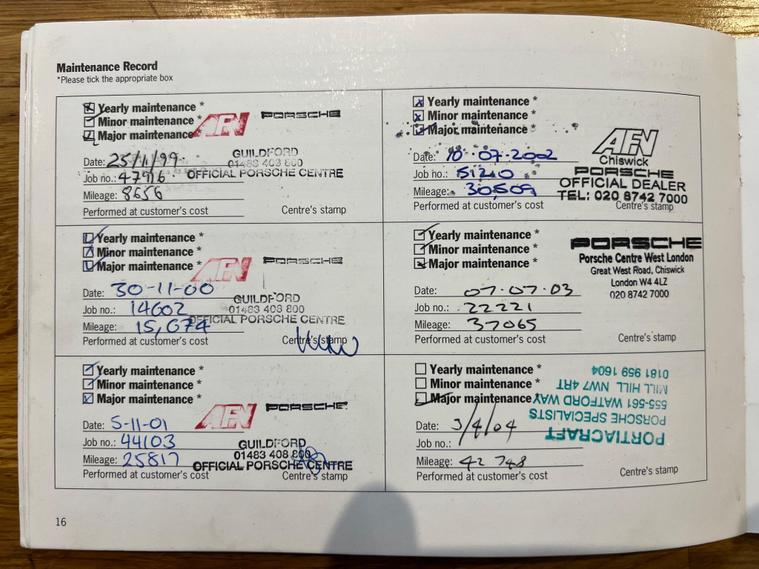 Maintenance Record
*Please tick the appropriate box
Yearly maintenance *
Minor maintenance *
Major maintenance
AFN PORSCHE
GUILDFORD
01483 408 800
OFFICIAL PORSCHE CENTRE
Date: 25/11/99
Job no.: 47916
Mileage: 8656
Performed at customer's cost
Centre's stamp
Yearly maintenance *
Minor maintenance *
Major maintenance *
AFN PORSCHE
GUILDFORD
01483 408 800
OFFICIAL PORSCHE CENTRE
Date: 30-11-00
Job no.: 14602
Mileage: 15,074
Performed at customer's cost
Centre's stamp
Yearly maintenance *
Minor maintenance *
Major maintenance *
AFN PORSCHE
GUILDFORD
01483 408 800
OFFICIAL PORSCHE CENTRE
Date: 5-11-01
Job no.: 44103
Mileage: 25817
Performed at customer's cost
Centre's stamp
Yearly maintenance *
Minor maintenance *
Major maintenance *
AFN
Chiswick
PORSCHE
OFFICIAL DEALER
TEL: 020 8742 7000
Date: 10-07-2002
Job no.: 51210
Mileage: 30,509
Performed at customer's cost
Centre's stamp
Yearly maintenance *
Minor maintenance *
Major maintenance *
PORSCHE
Porsche Centre West London
Great West Road, Chiswick
London W4 4LZ
020 8742 7000
Date: 07.07.03
Job no.: 22221
Mileage: 37065
Performed at customer's cost
Centre's stamp
Yearly maintenance *
Minor maintenance *
Major maintenance
PORTIACRAFT
PORSCHE SPECIALISTS
555-561 WATFORD WAY
MILL HILL NW7 4RT
0181 959 1604
Date: 3/4/04
Job no.:
Mileage: 42 748
Performed at customer's cost
Centre's stamp
16